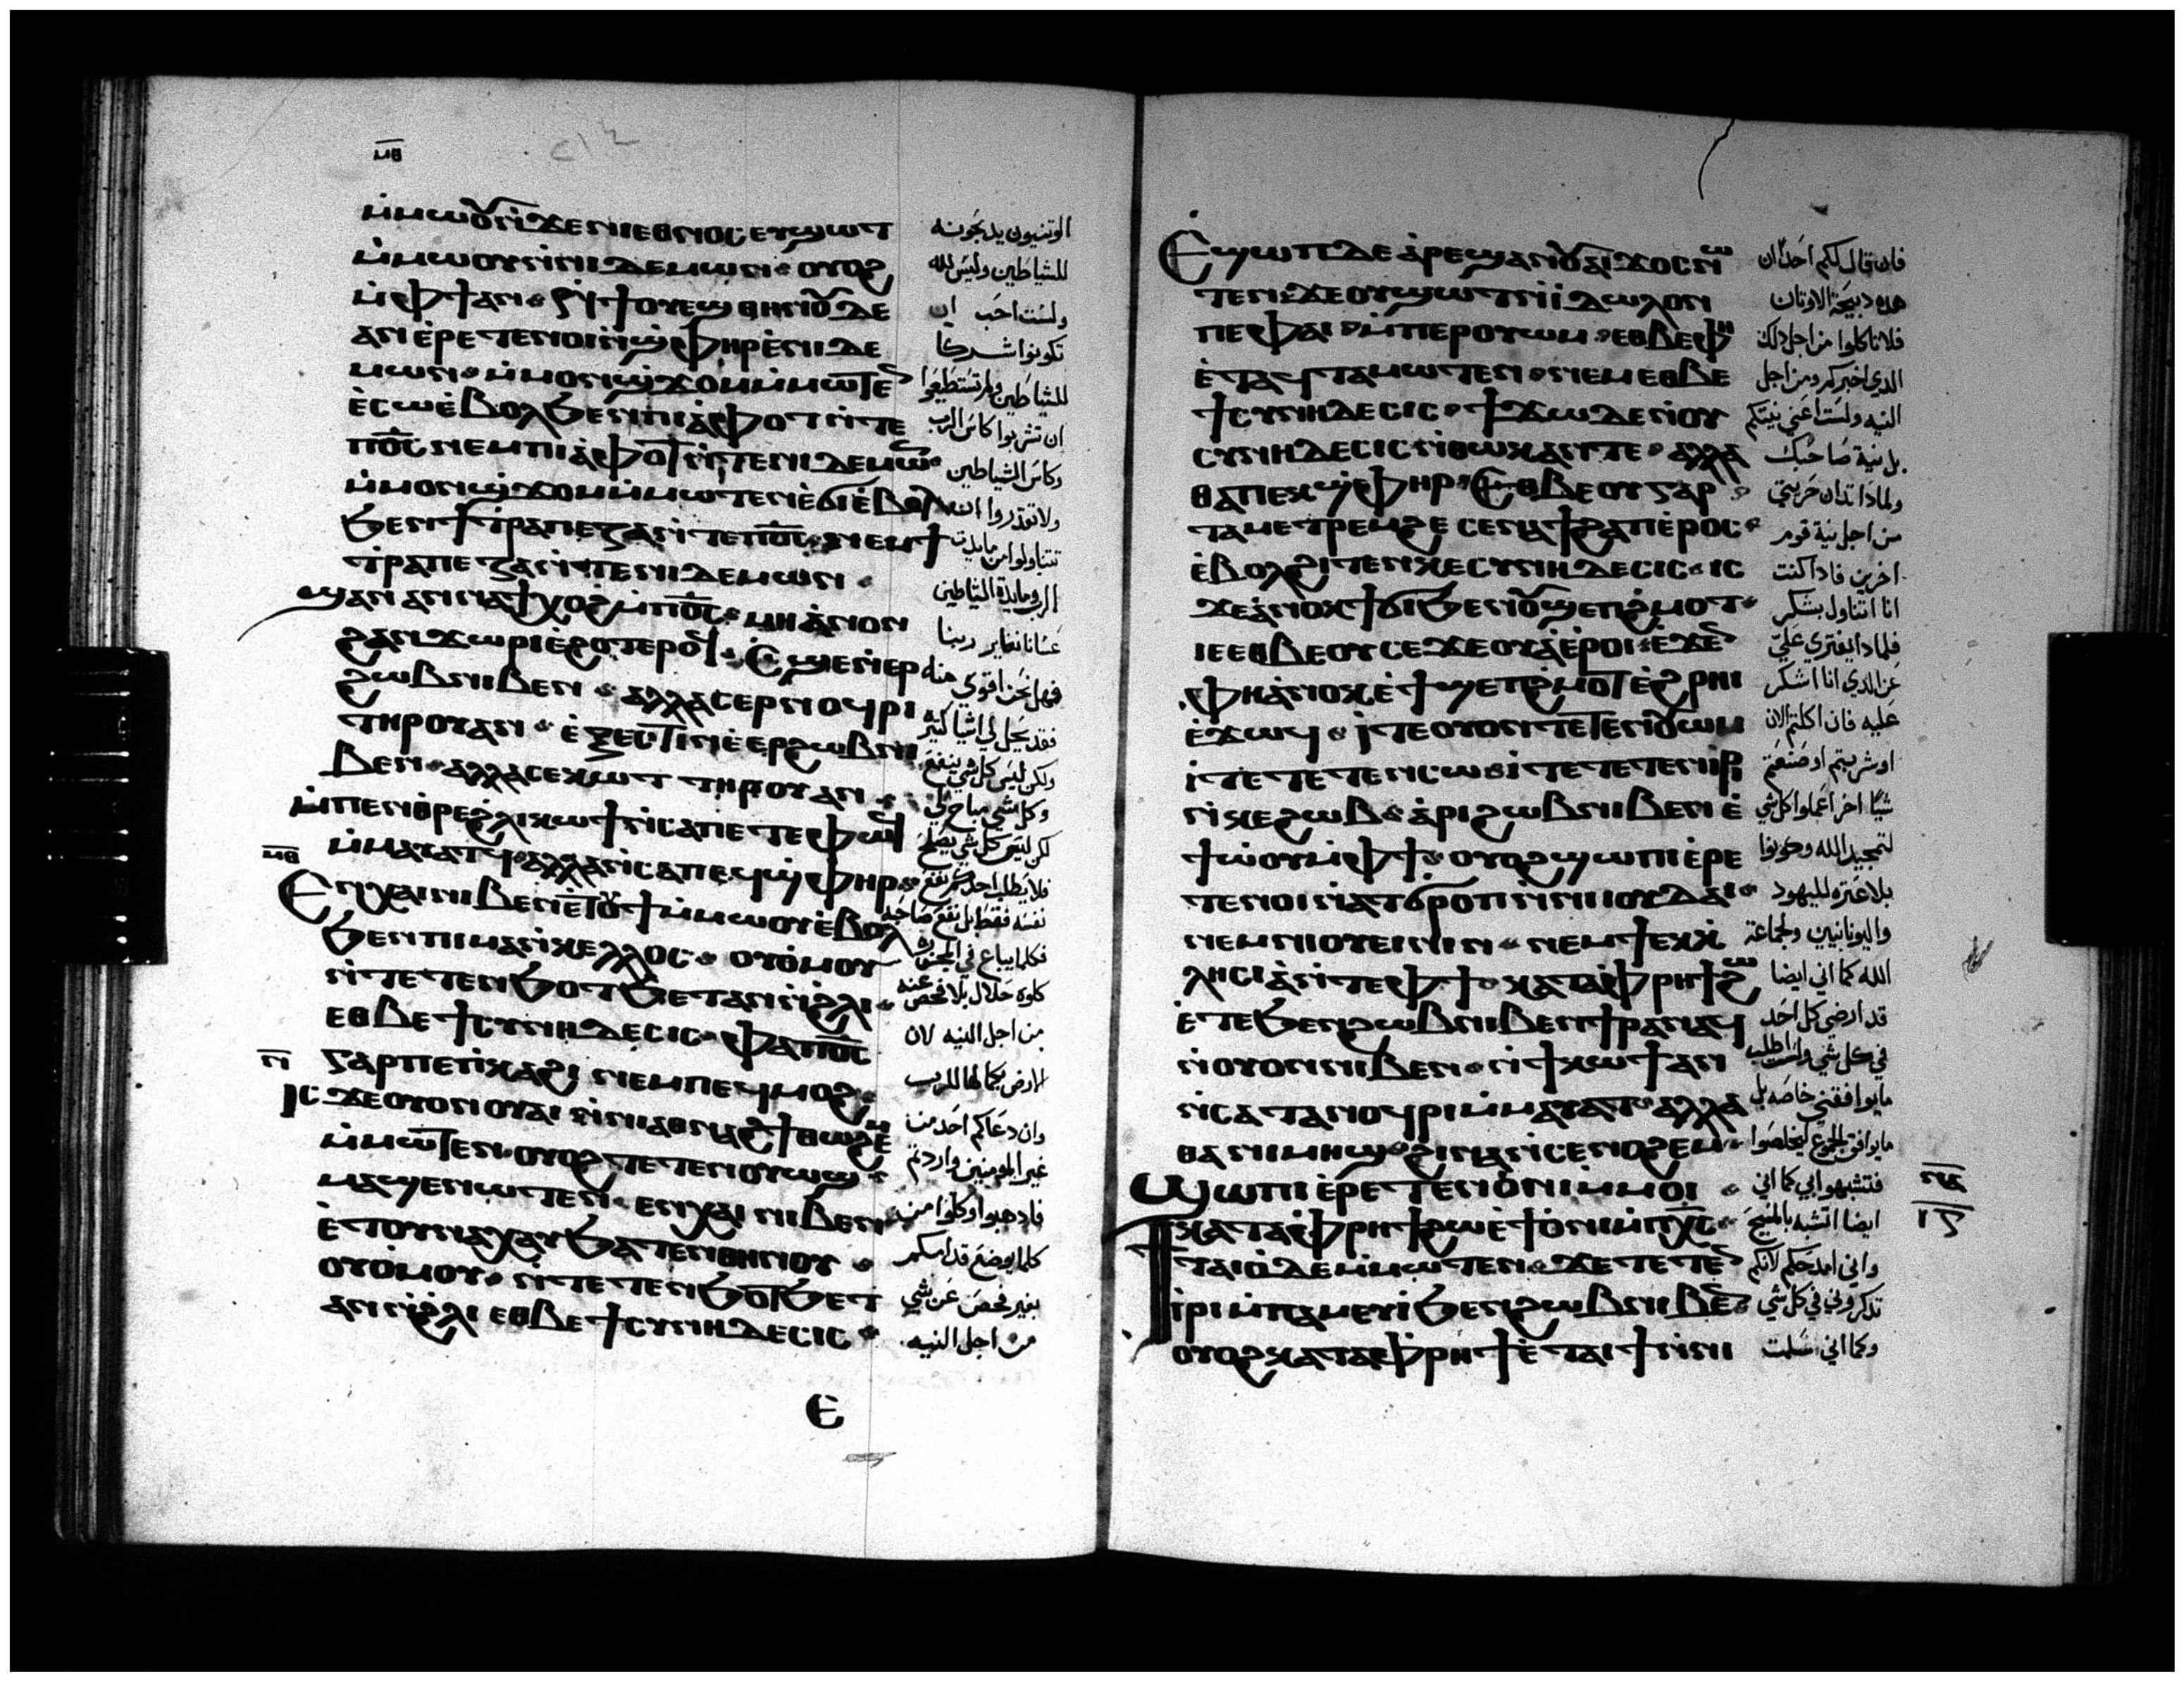 ⲙⲑ
ⲙ̀ⲙⲱⲟⲩ ⲛ̀ϫⲉ ⲛⲓⲉⲑⲛⲟⲥ ⲉⲩϣⲱⲧ
ⲙ̀ⲙⲱⲟⲩ ⲛ̀ⲛⲓⲇⲉⲙⲱⲛ ⲟⲩⲟϩ
ⲙ̀ⲫϯ ⲁⲛ ⲛ̀ϯⲟⲩⲉϣ ⲑⲏⲛⲟⲩ ⲇⲉ
ⲁⲛ ⲉ̀ⲣⲉⲧⲉⲛⲟⲓ ⲛ̀ϣⲫⲏⲣ ⲉ̀ⲛⲓⲇⲉ
ⲙⲱⲛ ⲙ̀ⲙⲟⲛ ϣϫⲟⲙ ⲙ̀ⲙⲱⲧⲉⲛ
ⲉ̀ⲥⲱ ⲉ̀ⲃⲟⲗ ϧⲉⲛ ⲡⲓⲁ̀ⲫⲟⲧ ⲛ̀ⲧⲉ
ⲡⲟ̅ⲥ̅ ⲛⲉⲙ ⲡⲓⲁ̀ⲫⲟⲧ ⲛ̀ⲧⲉ ⲛⲓⲇⲉⲙⲱⲛ
ⲙ̀ⲙⲟⲛ ϣϫⲟⲙ ⲙ̀ⲙⲱⲧⲉⲛ ⲉ̀ϭⲓ ⲉ̀ⲃⲟⲗ
ϧⲉⲛ ϯⲧⲣⲁⲡⲉⲍⲁ ⲛ̀ⲧⲉ ⲡⲟ̅ⲥ̅ ⲛⲉⲙ ϯ
ⲧⲣⲁⲡⲉⲍⲁ ⲛ̀ⲧⲉ ⲛⲓⲇⲉⲙⲱⲛ
ϣⲁⲛ ⲁⲛⲛⲁϯⲭⲟϩ ⲙ̀ⲡⲟ̅ⲥ̅ ⲙⲏ ⲁ̀ⲛⲟⲛ
ϩⲁⲛϫⲱⲣⲓ ⲉ̀ϩⲟⲧⲉⲣⲟϥ Ⲥϣⲉ ⲛ̀ⲉⲣ
ϩⲱⲃ ⲛⲓⲃⲉⲛ ⲁⲗⲗⲁ ⲥⲉⲣⲛⲟϥⲣⲓ
ⲧⲏⲣⲟⲩ ⲁⲛ ⲉ̀ⲝⲉⲥⲧⲓⲛ ⲉ̀ⲉⲣϩⲱⲃ ⲛⲓ
ⲃⲉⲛ ⲁⲗⲗⲁ ⲥⲉⲕⲱⲧ ⲧⲏⲣⲟⲩ ⲁⲛ
ⲙ̀ⲡⲉⲛⲑⲣⲉϩⲗⲓ ⲕⲱϯ ⲛ̀ⲥⲁ ⲡⲉⲧⲉⲫⲱϥ
ⲙ̀ⲙⲁⲩⲁⲧϥ ⲁⲗⲗⲁ ⲛ̀ⲥⲁ ⲡⲉϥϣⲫⲏⲣ
ⲙⲑ
Ⲉⲛⲭⲁⲓ ⲛⲓⲃⲉⲛ ⲉⲧⲟⲩϯ ⲙ̀ⲙⲱⲟⲩ ⲉ̀ⲃⲟⲗ
ϧⲉⲛ ⲡⲓⲙⲁⲛⲕⲉⲗⲗⲟⲥ ⲟⲩⲟ̀ⲙⲟⲩ
ⲛ̀ⲧⲉⲧⲉⲛϧⲟⲧϧⲉⲧ ⲁⲛ ⲛ̀ϩⲗⲓ
ⲉⲑⲃⲉ ϯⲥⲩⲛⲏⲇⲉⲥⲓⲥ ⲫⲁ ⲡⲟ̅ⲥ̅
ⲅⲁⲣ ⲡⲉ ⲡ̀ⲕⲁϩⲓ ⲛⲉⲙ ⲡⲉϥⲙⲟϩ
ⲛ
Ⲓⲥϫⲉ ⲟⲩⲟⲛ ⲟⲩⲁⲓ ⲛ̀ⲛⲓⲁⲑⲛⲁϩϯ ⲑⲱϩⲉⲙ
ⲙ̀ⲙⲱⲧⲉⲛ ⲟⲩⲟϩ ⲧⲉⲧⲉⲛⲟⲩⲱϣ
ⲙⲁϣⲉⲛⲱⲧⲉⲛ ⲉⲛⲭⲁⲓ ⲛⲓⲃⲉⲛ
ⲉ̀ⲧⲟⲩⲛⲁⲭⲁⲩ ϧⲁⲧⲉⲛ ⲑⲏⲛⲟⲩ
ⲟⲩⲟ̀ⲙⲟⲩ ⲛ̀ⲧⲉⲧⲉⲛϧⲟⲧϧⲉⲧ
ⲁⲛ ⲛ̀ϩⲗⲓ ⲉⲑⲃⲉ ϯⲥⲩⲛⲏⲇⲉⲥⲓⲥ
Ⲉ
الوثنيون يدبحونه
للشياطين وليس لله
ولست احب ان
تكونوا شركا
للشياطين ولم تستطيعوا
ان تشربوا كاس الرب
وكاس الشياطين
ولا تقدروا ان
تتناولوا من مايدة
الرب ومايدة الشياطين
عسانا نغاير ربنا
فهل نحن اقوي منه
فقد يحل لي اشيا كثيره
ولكن ليس كل شي ينفع
وكل شي مباح لي
لكن ليس كل شي يصلح
فلا يطلب احدكم نفع
نفسه فقط بل نفع صاحبه
فكلما يباع في المجزره
كلوه حلال بلا فحص عنه
من اجل النيه لان
الارض بكمالها للرب
وان دعاكم احد من
غير المومنين واردتم
فادهبوا وكلوا من
كلما يوضع قدامكم
بغير فحص عن شي
من اجل النيه
Ⲉϣⲱⲡ ⲇⲉ ⲁ̀ⲣⲉϣⲁⲛ ⲟⲩⲁⲓ ϫⲟⲥ ⲛⲱ
ⲧⲉⲛ ϫⲉ ⲟⲩϣⲱⲧ ⲛ̀ⲓ̀ⲇⲱⲗⲟⲛ
ⲡⲉ ⲫⲁⲓ ⲙ̀ⲡⲉⲣⲟⲩⲱⲙ ⲉⲑⲃⲉ ⲫⲏ
ⲉ̀ⲧⲁϥⲧⲁⲙⲱⲧⲉⲛ ⲛⲉⲙ ⲉⲑⲃⲉ
ϯⲥⲩⲛⲏⲇⲉⲥⲓⲥ ϯϫⲱ ⲇⲉ ⲛ̀ⲟⲩ
ⲥⲩⲛⲏⲇⲉⲥⲓⲥ ⲛ̀ⲑⲱⲕ ⲁⲛ ⲧⲉ ⲁⲗⲗⲁ
ⲑⲁ ⲡⲉⲕϣⲫⲏⲣ Ⲉⲑⲃⲉ ⲟⲩ ⲅⲁⲣ
ⲧⲁⲙⲉⲧⲣⲉⲙϩⲉ ⲥⲉⲛⲁϯϩⲁⲡ ⲉ̀ⲣⲟⲥ
ⲉ̀ⲃⲟⲗϩⲓⲧⲉⲛ ⲕⲉⲥⲩⲛⲏⲇⲉⲥⲓⲥ ⲓⲥ
ϫⲉ ⲁ̀ⲛⲟⲕ ϯϭⲓ ϧⲉⲛ ⲟⲩϣⲉⲡϩⲙⲟⲧ
ⲓⲉ ⲉⲑⲃⲉ ⲟⲩ ⲥⲉϫⲉⲟⲩⲁ̀ ⲉ̀ⲣⲟⲓ ⲉ̀ϫⲉⲛ
ⲫⲏ ⲁ̀ⲛⲟⲕ ⲉ̀ϯϣⲉⲡϩⲙⲟⲧ ⲉ̀ϩⲣⲏⲓ
ⲉ̀ϫⲱϥ ⲓⲧⲉ ⲟⲩⲟⲛ ⲧⲉⲧⲉⲛⲟⲩⲱⲙ
ⲓⲧⲉ ⲧⲉⲧⲉⲛⲥⲱ ⲓⲧⲉ ⲧⲉⲧⲉⲛⲓⲣⲓ
ⲛ̀ⲕⲉϩⲱⲃ ⲁ̀ⲣⲓ ϩⲱⲃ ⲛⲓⲃⲉⲛ ⲉ̀
ϯⲱ̀ⲟⲩ ⲙ̀ⲫϯ ⲟⲩⲟϩ ϣⲱⲡⲓ ⲉ̀ⲣⲉ
ⲧⲉⲛⲟⲓ ⲛ̀ⲁⲧϭⲣⲟⲡ ⲛ̀ⲛⲓⲓⲟⲩⲇⲁⲓ
ⲛⲉⲙ ⲛⲓⲟⲩⲉⲓⲛⲓⲛ ⲛⲉⲙ ϯⲉⲕⲕ̀
ⲗⲏⲥⲓⲁ̀ ⲛ̀ⲧⲉ ⲫϯ ⲕⲁⲧⲁ ⲫⲣⲏϯ ϩⲱ
ⲉ̀ⲧⲉ ϧⲉⲛ ϩⲱⲃ ⲛⲓⲃⲉⲛ ϯⲣⲁⲛⲁϥ
ⲛ̀ⲟⲩⲟⲛ ⲛⲓⲃⲉⲛ ⲛ̀ϯⲕⲱϯ ⲁⲛ
ⲛ̀ⲥⲁ ⲧⲁⲛⲟϥⲣⲓ ⲙ̀ⲙⲁⲩⲁⲧ ⲁⲗⲗⲁ
ⲑⲁ ⲛⲓⲙⲏϣ ϩⲓⲛⲁ ⲛ̀ⲥⲉⲛⲟϩⲉⲙ
Ϣⲱⲡⲓ ⲉ̀ⲣⲉⲧⲉⲛⲟ̀ⲛⲓ ⲙ̀ⲙⲟⲓ
ⲕⲁⲧⲁ ⲫⲣⲏϯ ϩⲱ ⲉ̀ϯⲟ̀ⲛⲓ ⲙ̀ⲡⲭ̅ⲥ̅
Ϯⲧⲁⲓⲟ̀ ⲇⲉ ⲙ̀ⲙⲱⲧⲉⲛ ϫⲉ ⲧⲉⲧⲉⲛ
ⲓⲣⲓ ⲙ̀ⲡⲁⲙⲉⲩⲓ̀ ϧⲉⲛ ϩⲱⲃ ⲛⲓⲃⲉⲛ
ⲟⲩⲟϩ ⲕⲁⲧⲁ ⲫⲣⲏϯ ⲉ̀ⲧⲁⲓϯ ⲛ̀ⲛⲓ
فان قال لكم احد ان
هده دبيحة الاوتان
فلا تاكلوا من اجل دلك
الدي اخبركم ومن اجل
النيه ولست اعني نيتكم
بل نية صاحبك
ولمادا تدان حريتي
من اجل نية قوم
اخرين فادا كنت
انا اتناول بشكر
فلمادا يفتري علي
عن الدي انا اشكر
عليه فان اكلتم الان
او شربتم او صنعتم
شيا اخر اعملوا كل شي
لتمجيد الله وكونوا
بلا عثره لليهود
واليونانيين ولجماعة
الله كما اني ايضا
قد ارضي كل احد
في كل شي ولست اطلب
ما يوافقني خاصه بل
ما يوافق الجمع ليخلصوا
فتشبهوا بي كما اني
ايضا اتشبه بالمسيح
واني امدحكم لانكم
تدكروني في كل شي
وكما اني سلمت
ⲛⲁ